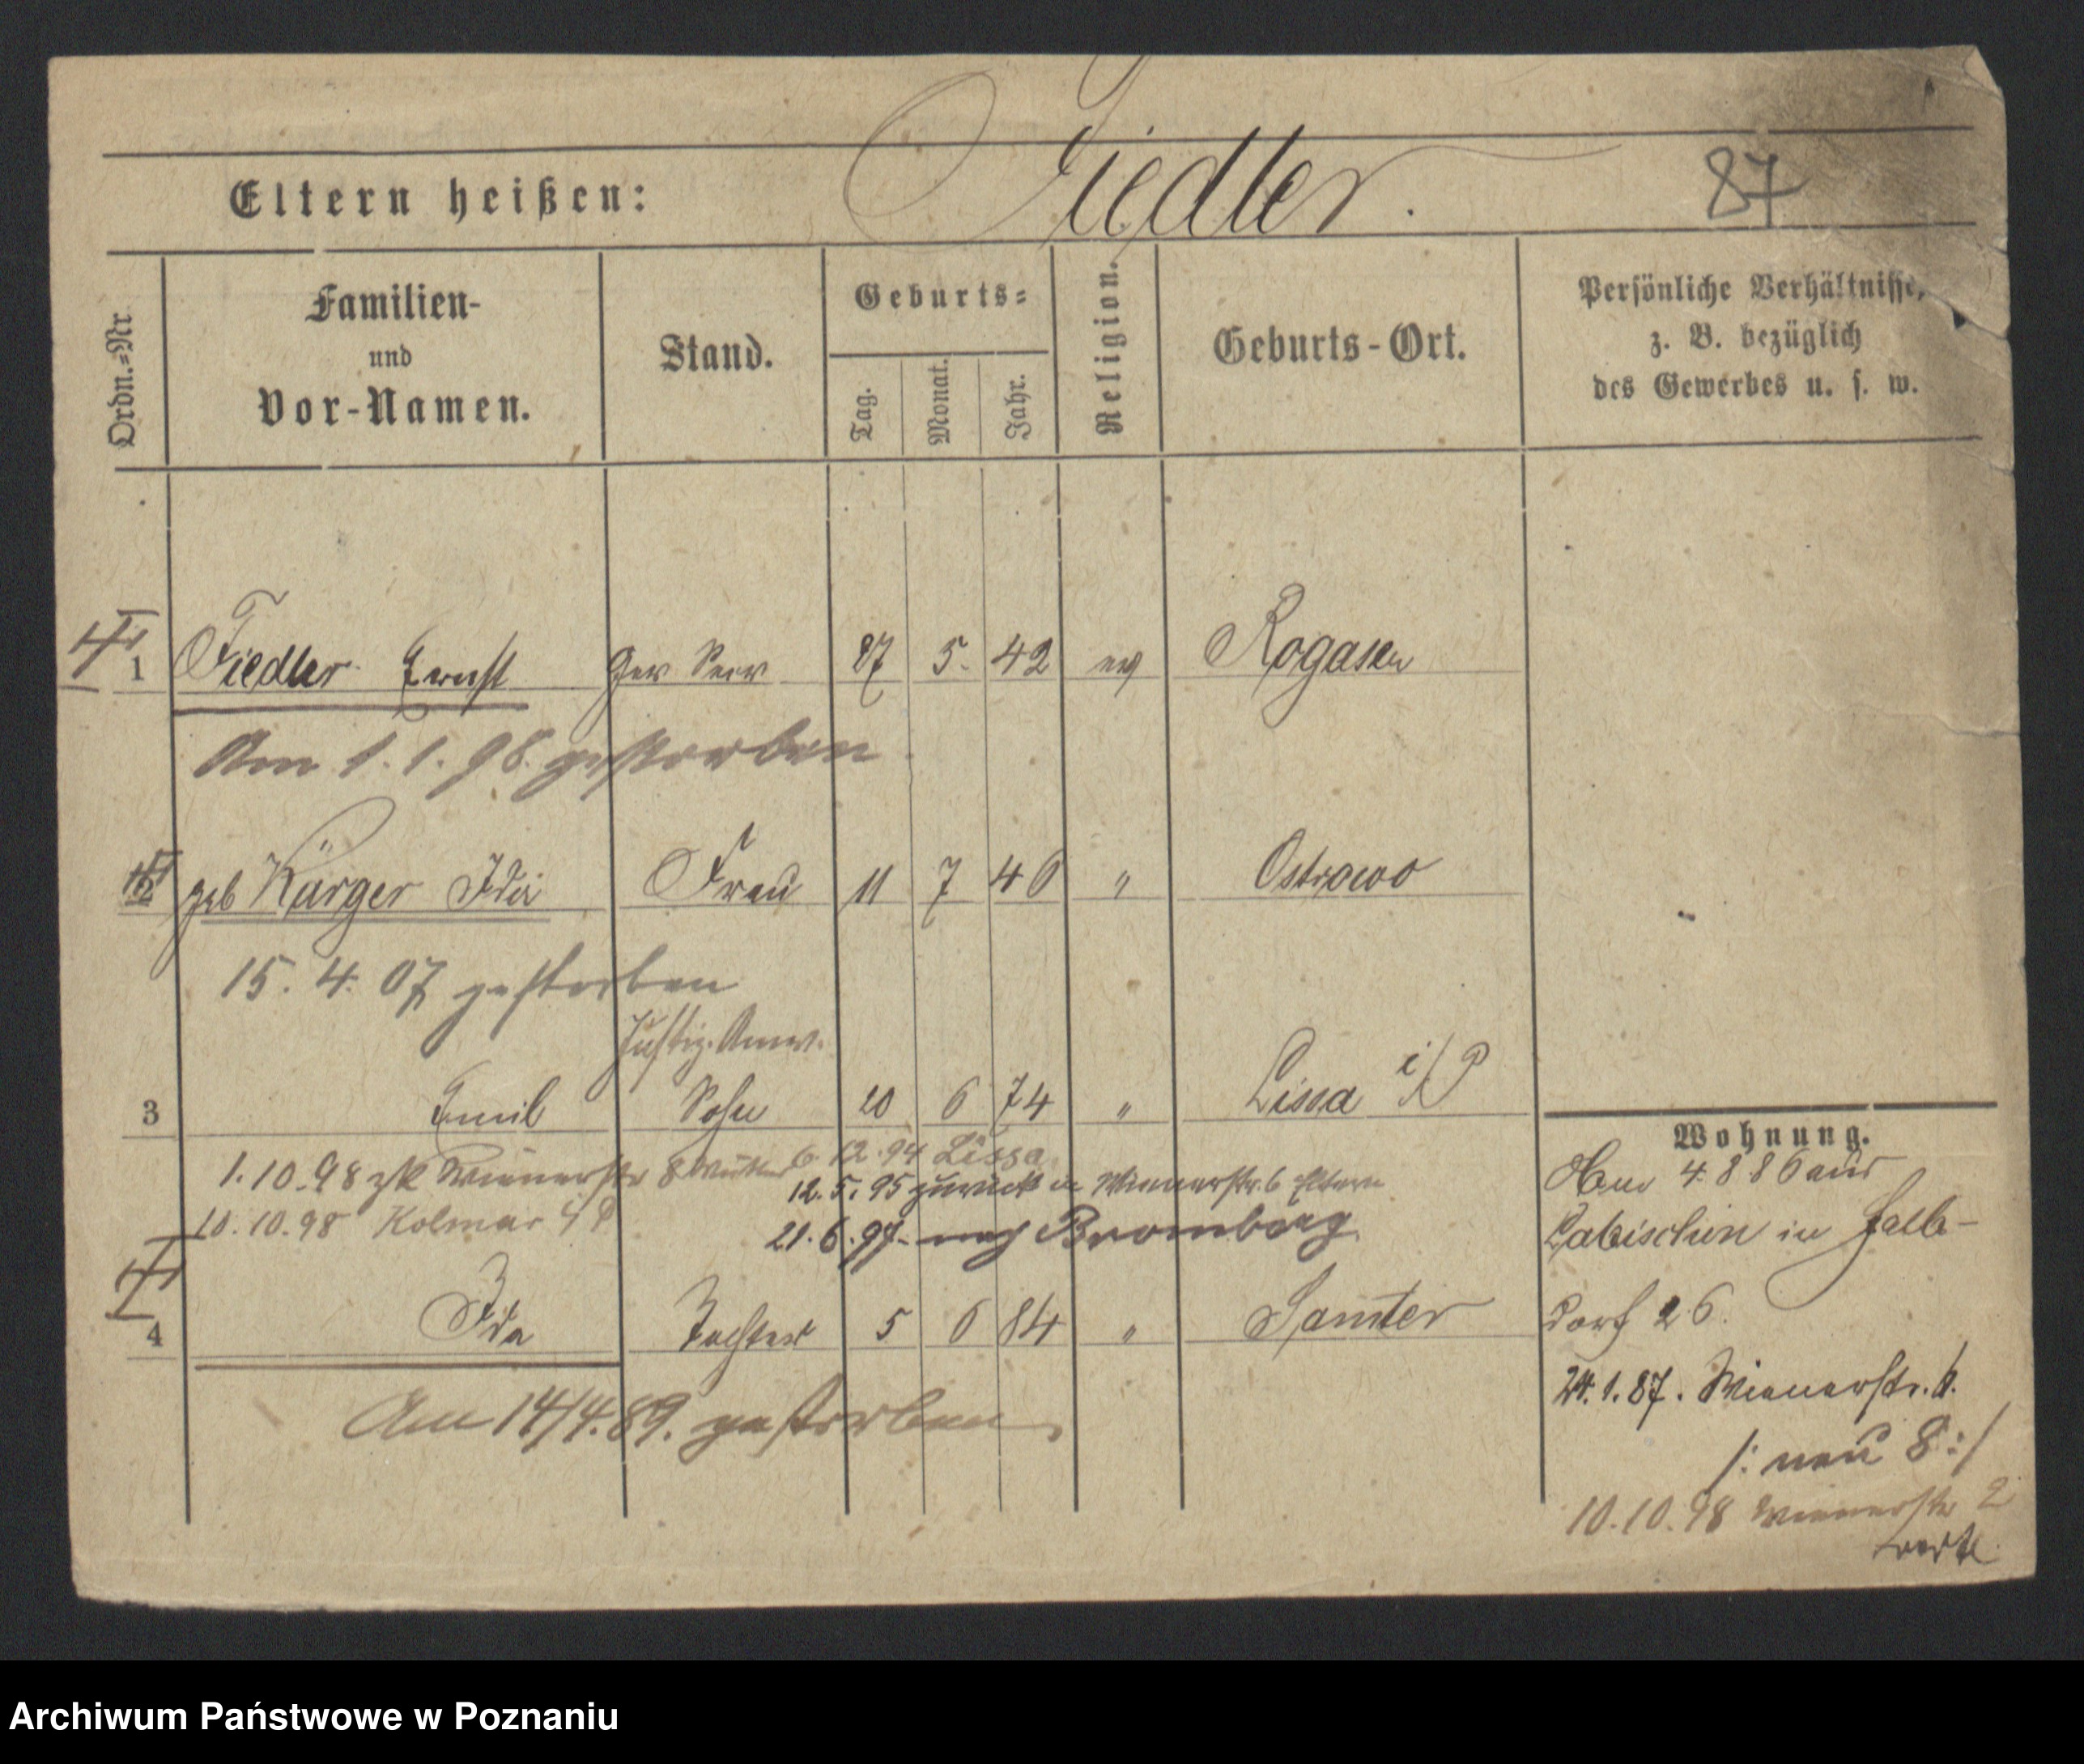 Eltern heißen: Fiedler. 87
Ordn.=Nr.
Familien-
und
Vor-Namen.
Stand.
Geburts=
Tag.
Monat.
Jahr.
Religion.
Geburts-Ort.
Persönliche Verhältnisse,
z. B. bezüglich
des Gewerbes u. s. w.
1 Fiedler Ernst Ger Secr 27 5. 42 ev Rogasen
Am 1.1.98. gestorben
2 geb Kärger Ida Frau 11 7 46 " Ostrowo
15. 4. 07 gestorben
Justiz. Anw.
3 Emil Sohn 20 6 74 " Lissa i/P
1.10.98 zk Wienerstr 8 Mutter
6. 12. 94 Lissa
12. 5. 95 zurück Wienerstr. 6 Eltern
10.10.98 Kolmar
21. 6. 97. nach Bromberg
4 Ida Tochter 5 6 84 " Samter
Am 14/4.89. gestorben
Wohnung.
4 8 86 aus
Labischin in
dorf 26.
24.1.87. Wienerstr. 6.
/: neu 8 :/
10.10.98 Wienerstr 2